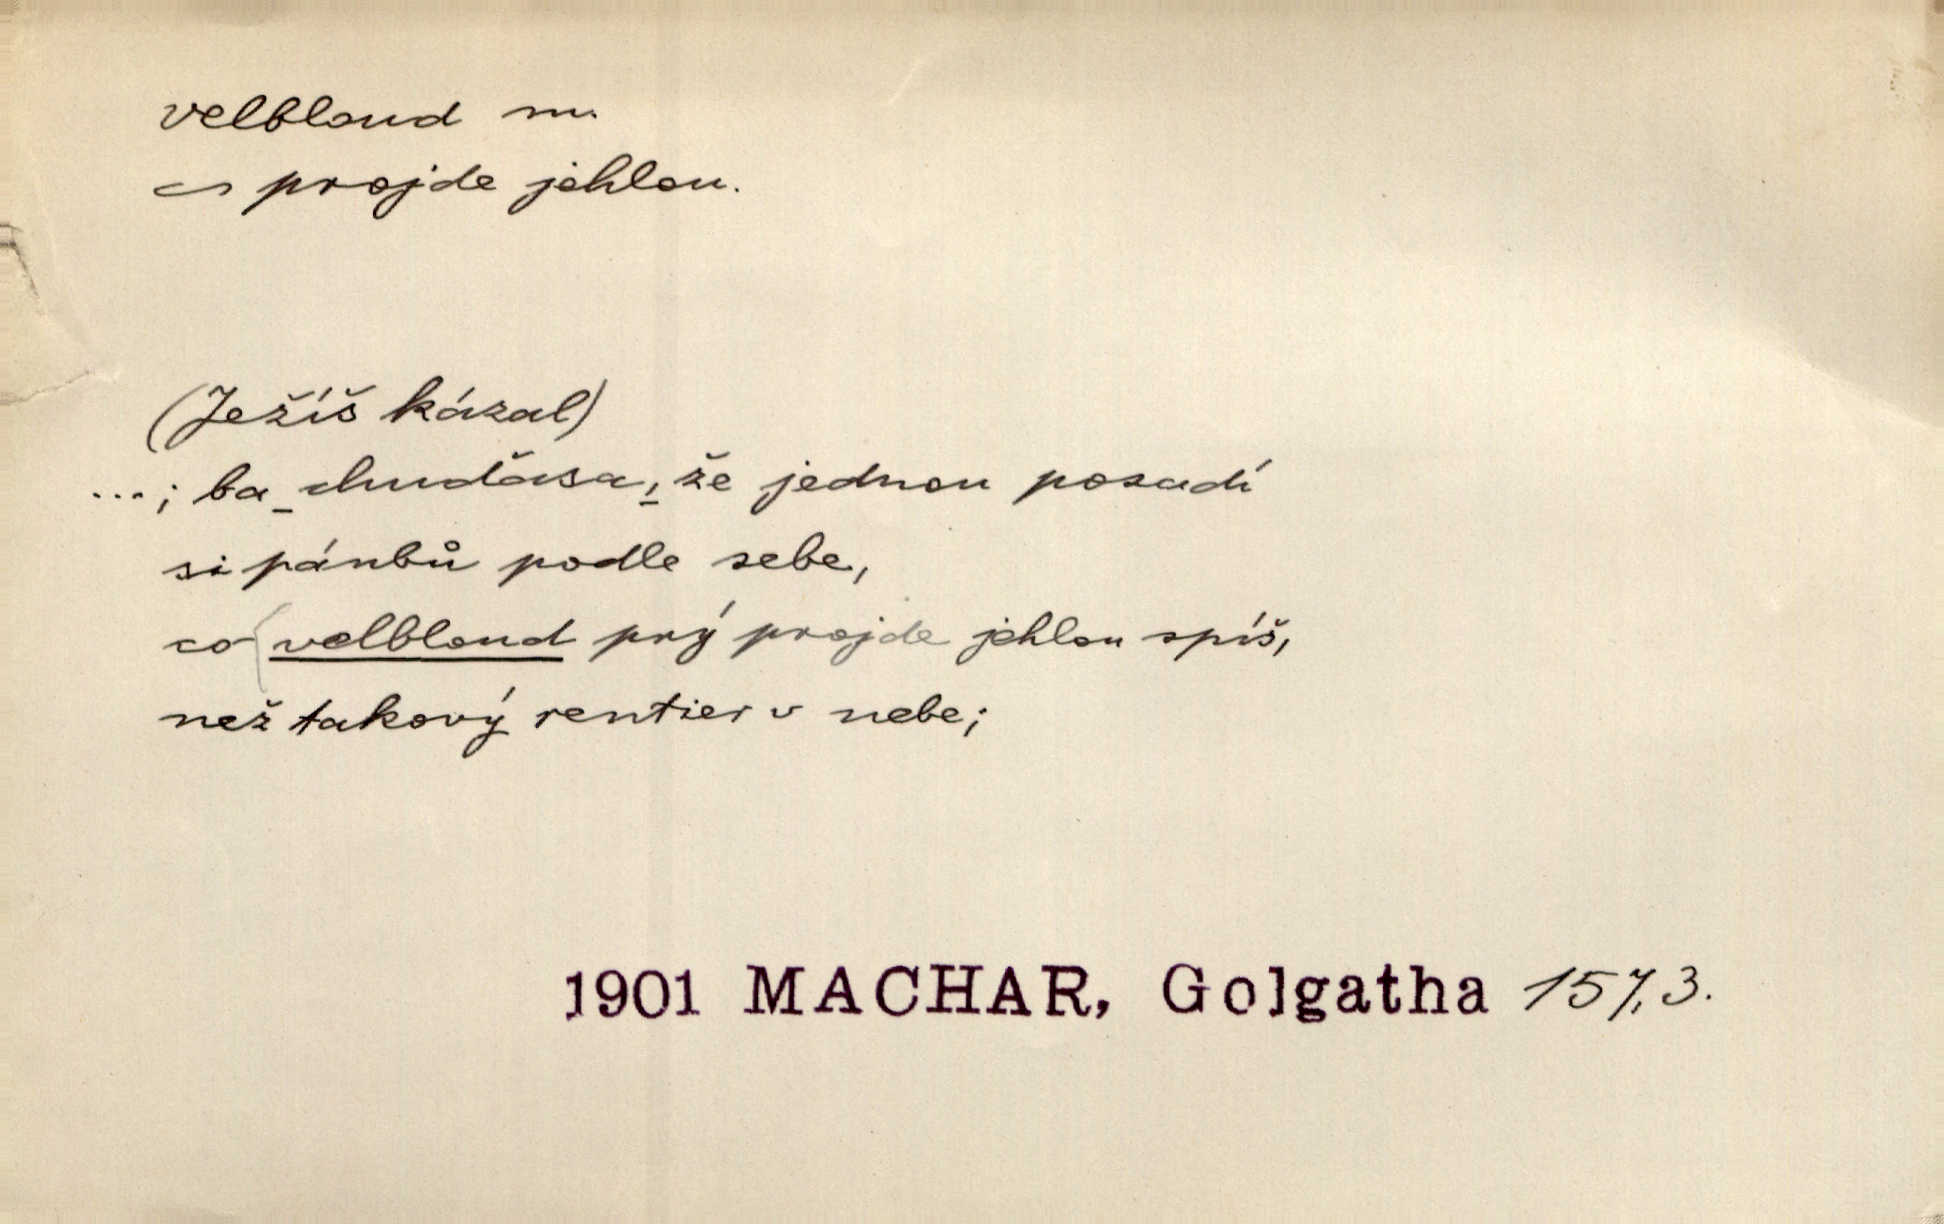 velbloud m.
∽ projde jehlou.
(Ježíš kázal)
...; ba_chuďasa, že jednou posadí
si pánbů podle sebe,
co velbloud prý projde jehlou spíš,
než takový rentier v nebe;
1901 MACHAR, Golgatha 157,3.